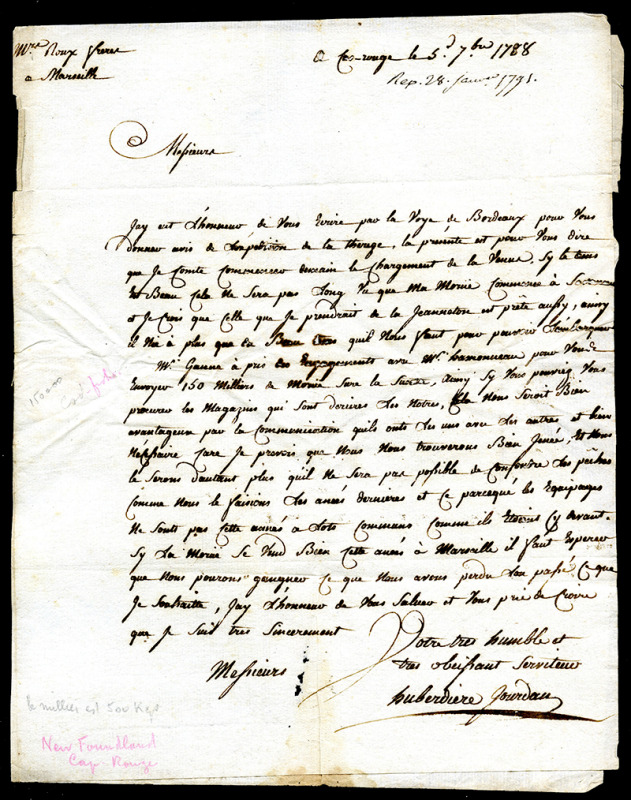 Mrs Roux freres
a Marseille
a Cap-rouge le 5d 7bre 1788
Rep. 28. janv. 1791.
Messieurs
Jay eut L'honneur de Vous Ecrire par la Voye de Bordeaux pour Vous
donner avis de de la therese, la présente est pour Vous dire
que Je Comte Commencer demain le Chargement de la Venus, Sy le tems
est Beau Cela Ne Sera pas Long Vu que Ma Morüe Commence à
et Je Crois que Celle que Je prendrai de la Jeanneton est prête aussy, ainsy
il N'a plus que du Beau tems quil Nous faut pour pouvoir L'embarquer
Mr. Ganne à pris des Engagements avec Mr. hamoneau pour Vous
Envoyer 150 Milliers de Morüe Sure la ainsy Sy Vous pouviez Vous
procurer les Magazins qui sont derieres Les Notres, Cela Nous Seroit Bien
avantageux par la Communication quils ont des uns avec Les autres et bien
Néssaire Care Je prevois que Nous Nous trouverons Bien Jenée, et Nous
le Serons dautant plus quil Ne Sera pas possible de Confondre Les pêches
Comme Nous le faisions Les anées dernieres et Ce parcequé les Equipages
Ne Sonts pas Cette année a Lots Communs Comme ils Etoient Cy devant.
Sy La Morüe Se Vend Bien Cette anées à Marseille il faut Esperer
que Nous pourons gaugner Ce que Nous avons perdu L'an passé Ce que
Je Souhaitte, Jay L'honneur de Vous Saluer et Vous prie de Croire
que Je Suis tres Sincerement
Messieurs
Votre tres humble et
tres obeissant Serviteur
huberdiere Jourdan
150000
Cod. fish
le millier est 500 Kgs
New Foundland
Cap Rouge